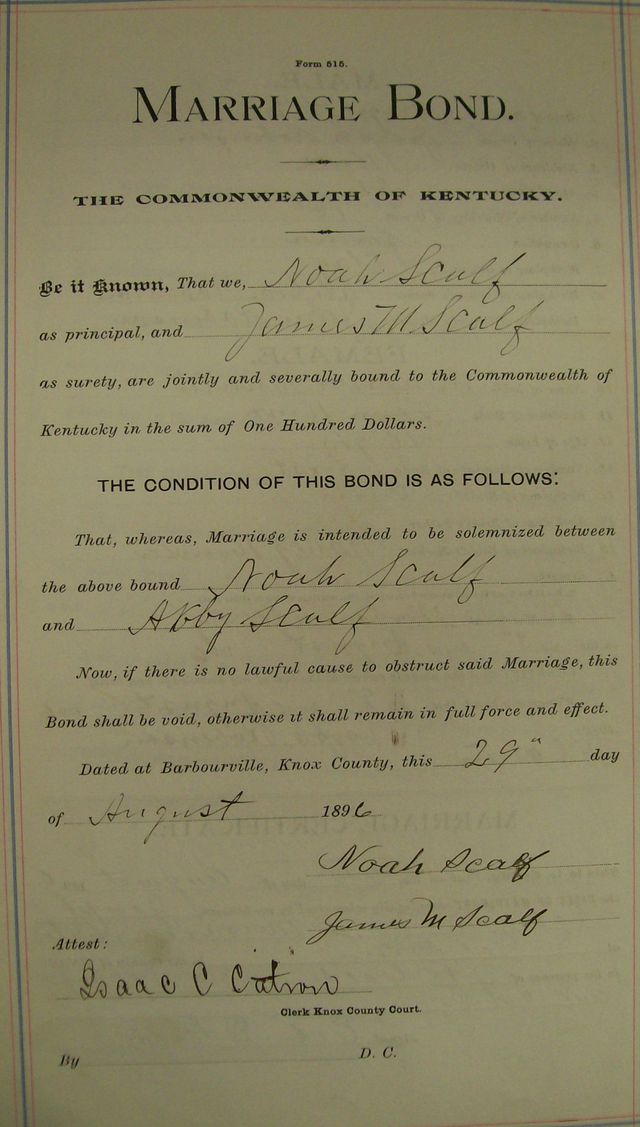 Form 515.
MARRIAGE BOND.
THE COMMONWEALTH OF KENTUCKY.
Be it Known, That we, Noah Scalf
as principal, and James M Scalf
as surety, are jointly and severally bound to the Commonwealth of
Kentucky in the sum of One Hundred Dollars.
THE CONDITION OF THIS BOND IS AS FOLLOWS:
That, whereas, Marriage is intended to be solemnized between
the above bound Noah Scalf
and Abby Scalf
Now, if there is no lawful cause to obstruct said Marriage, this
Bond shall be void, otherwise it shall remain in full force and effect.
Dated at Barbourville, Knox County, this 29" day
of August 1896
Noah Scalf
James M Scalf
Attest:
Isaac C Catron
Clerk Knox County Court.
By D. C.